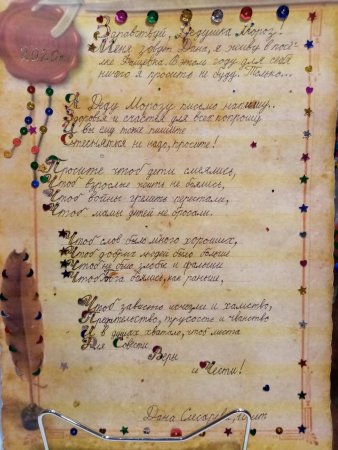 2020г
Здравствуй, Дедушка Мороз!
Меня зовут Дана, я живу в посёл-
ке Рощевка. В этом году для себя
ничего я просить не буду. Только...
Я Деду Морозу письмо напишу..
Здоровья и счастья для всех попрошу
И вы ему тоже пишите
Стесняться не надо, просите!
Просите чтоб дети смеялись,
Чтоб взрослые жить не боялись,
Чтоб войны греметь перестали,
Чтоб мамы детей не бросали.
Чтоб слов было много хороших,
Чтоб добрых людей было больше
Чтоб не было злобы и фальши
Чтоб боялись, как раньше,
Чтоб зависть исчезла и хамство,
Предательство, трусость и чванство
И в душах хватало, чтоб места
Для Совести
Веры
и Чести!
Дана